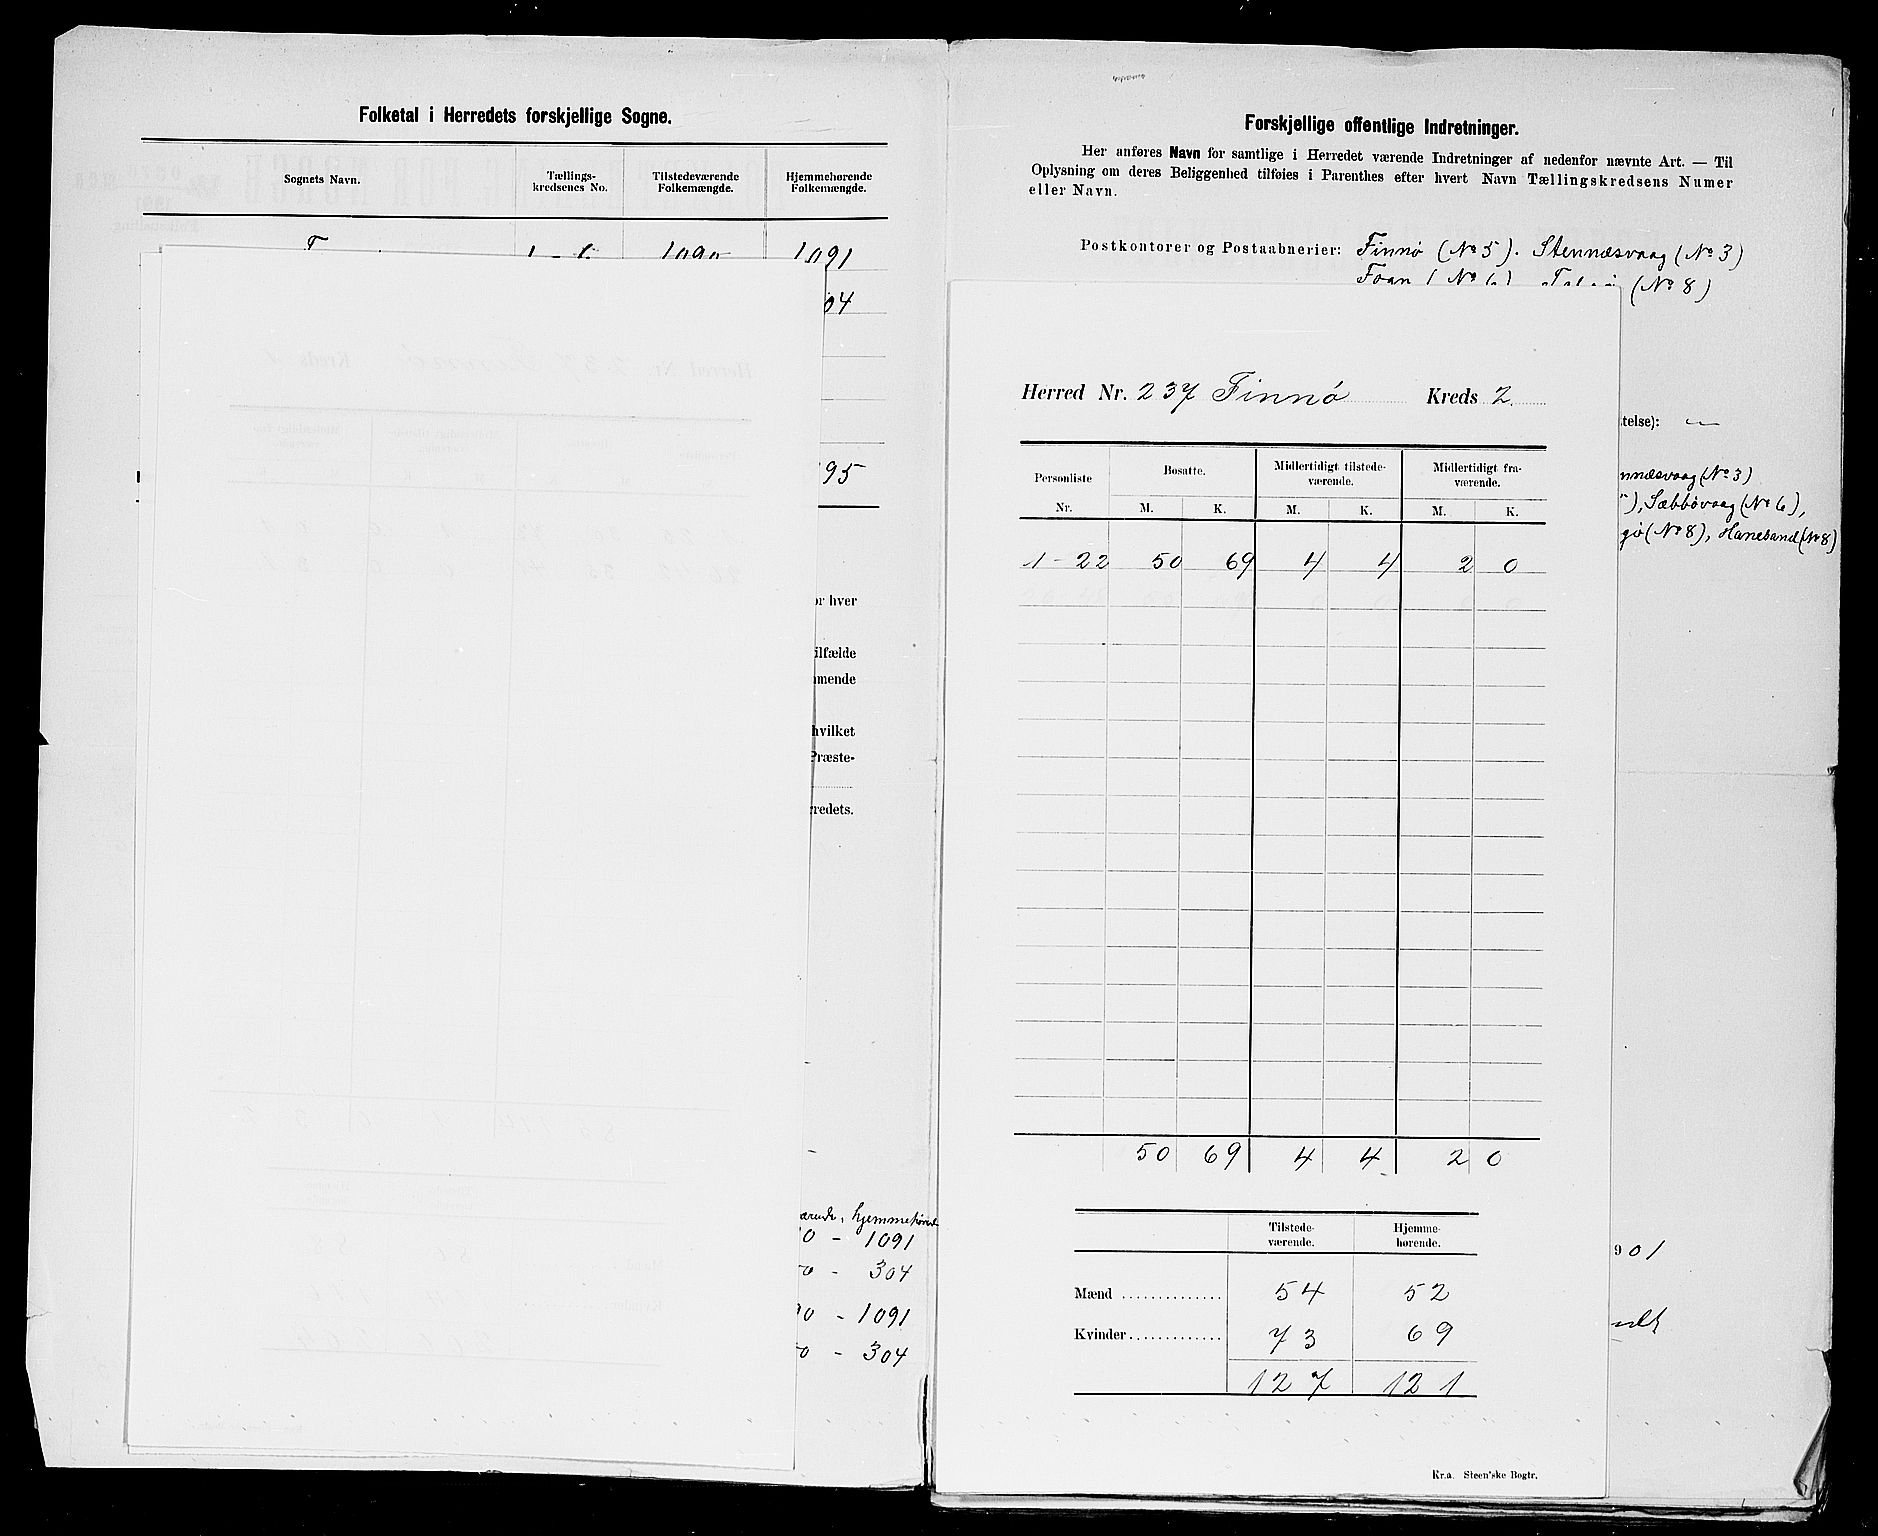 Folketal i Herredets forskjellige Sogne.
Sognets Navn. Tællings-kredsenes No. Tilstedeværende Folkemængde. Hjemmehørende Folkemængde.
1091
04
95
or hver
ilfælde
mmende
hvilket
Præste-
rredets.
ærende, hjemmehørende
10 - 1091
50 - 304
90 - 1091
50 - 304
Forskjellige offentlige Indretninger.
Her anføres Navn for samtlige i Herredet værende Indretninger af nedenfor nævnte Art. — Til
Oplysning om deres Beliggenhed tilføies i Parenthes efter hvert Navn Tællingskredsens Numer
eller Navn.
Postkontorer og Postaabnerier: Finnø (No 5). Stennæsvaag (No 3)
(No 8)
telse): —
nnæsvaag (No 3)
"), Sæbbøvaag (No 6),
gø (No 8), Hanesand (No 8)
901
Herred Nr. 237 Finnø Kreds 2
Personliste Bosatte. Midlertidigt tilstede-værende. Midlertidigt fra-værende.
Nr. M. K. M. K. M. K.
1-22 50 69 4 4 2 0
50 69 4 4 2 0
Tilstede-værende. Hjemme-hørende.
Mænd 54 52
Kvinder 73 69
127 121
Kr.a. Steen'ske Bogtr.